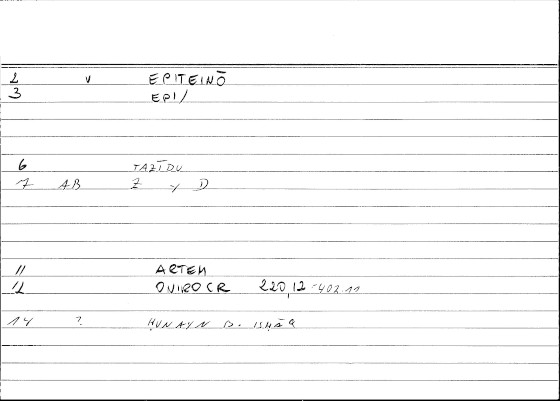 2 v EPITEINŌ
3 EPI/
6 TAZĪDU
7 AB Z Y D
11 ARTEM
12 ONIROCR 220,12-402.11
14 ? ḤUNAYN B. ISḤĀQ